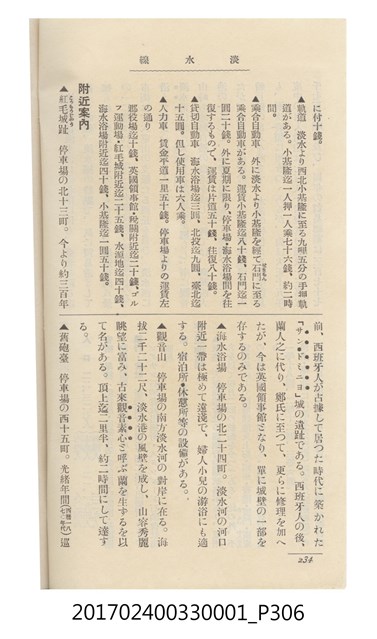 淡水線
に付十錢。
▲軌道　淡水より西北小基隆に至る九哩五分の手押軌
道がある。小基隆迄一人押一人乘七十六錢、約二時
間。
▲乘合自動車　外に淡水より小基隆を經て石門に至る
乘合自動車がある。運賃小基隆迄八十錢、石門迄一
圓二十錢。外に夏期に限り、停車場・海水浴場間を往
復するもので、運賃は片道五十錢、往復八十錢。
▲貸切自動車　海水浴場迄三圓、北投迄九圓、臺北迄
十五圓。但し使用車は六人乘。
▲人力車　賃金平道一里五十錢。停車場よりの運賃左
の通り
郡役場迄十錢、英國領事館・稅關附近迄二十錢、ゴル
フ運動場・紅毛城附近迄二十五錢、水源地迄四十錢、
海水浴場附近迄四十錢、小基隆迄一圓五十錢。
附近案內
▲紅毛城趾　停車場の北十三町。今より約三百年
前、西班牙人が占據して居つた時代に築かれた
『サン・ドミニヨ』城の遺趾である。西班牙人の後、
蘭人之に代り、鄭氏に至つて、更らに修理を加へ
たが、今は英國領事館となり、單に城壁の一部を
存するのみである。
▲海水浴場　停車場の北二十四町。淡水河の河口
附近一帶は極めて遠淺で、婦人小兒の游浴にも適
する。宿泊所・休憩所等の設備がある。
▲觀音山　停車場の南方淡水河の對岸に在る。海
拔二千二十二尺、淡水港の風壁を成し、山容秀麗
眺望に富み、古來觀音素心と呼ぶ蘭を生ずるを以
て名がある。頂上迄二里半、約二時間にして達す
る。
▲舊砲臺　停車場の西十五町。光緖年間
巡
234
201702400330001_P306